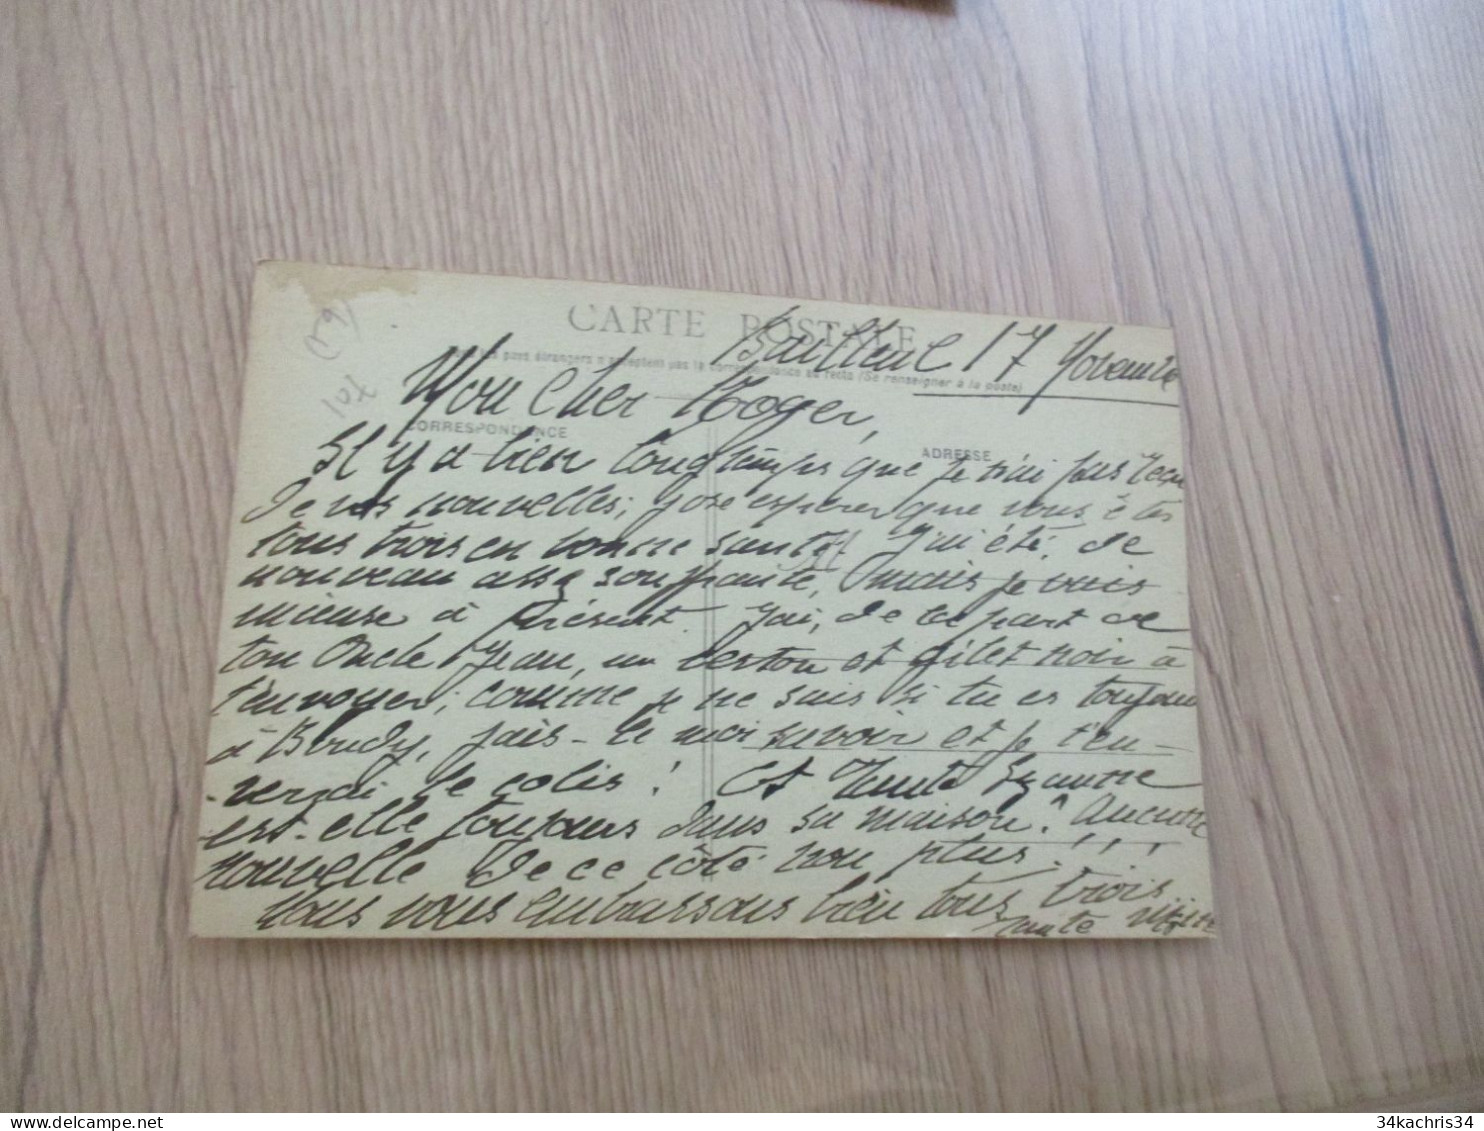 CARTE POSTALE
Bailleul 17 Novembre
pays étrangers n'acceptent pas la correspondance au recto (Se renseigner à la poste)
Mon Cher Roger,
CORRESPONDENCE
ADRESSE
Il y a bien longtemps que je n'ai pas reçu
de vos nouvelles; j'ose espérer que vous êtes
tous trois en bonne santé! J'ai été, de
nouveau assez souffrante, mais je vais
mieux à présent. J'ai, de la part de
ton Oncle Jean, un veston et gilet noir à
t'envoyer; comme je ne sais si tu es toujours
à , fais-le moi savoir et je t'en-
verrai le colis! Et Tante
est-elle toujours dans sa maison? Aucune
nouvelle de ce côté non plus!!!
Nous vous embrassons bien tous trois
Tante
34kachris34